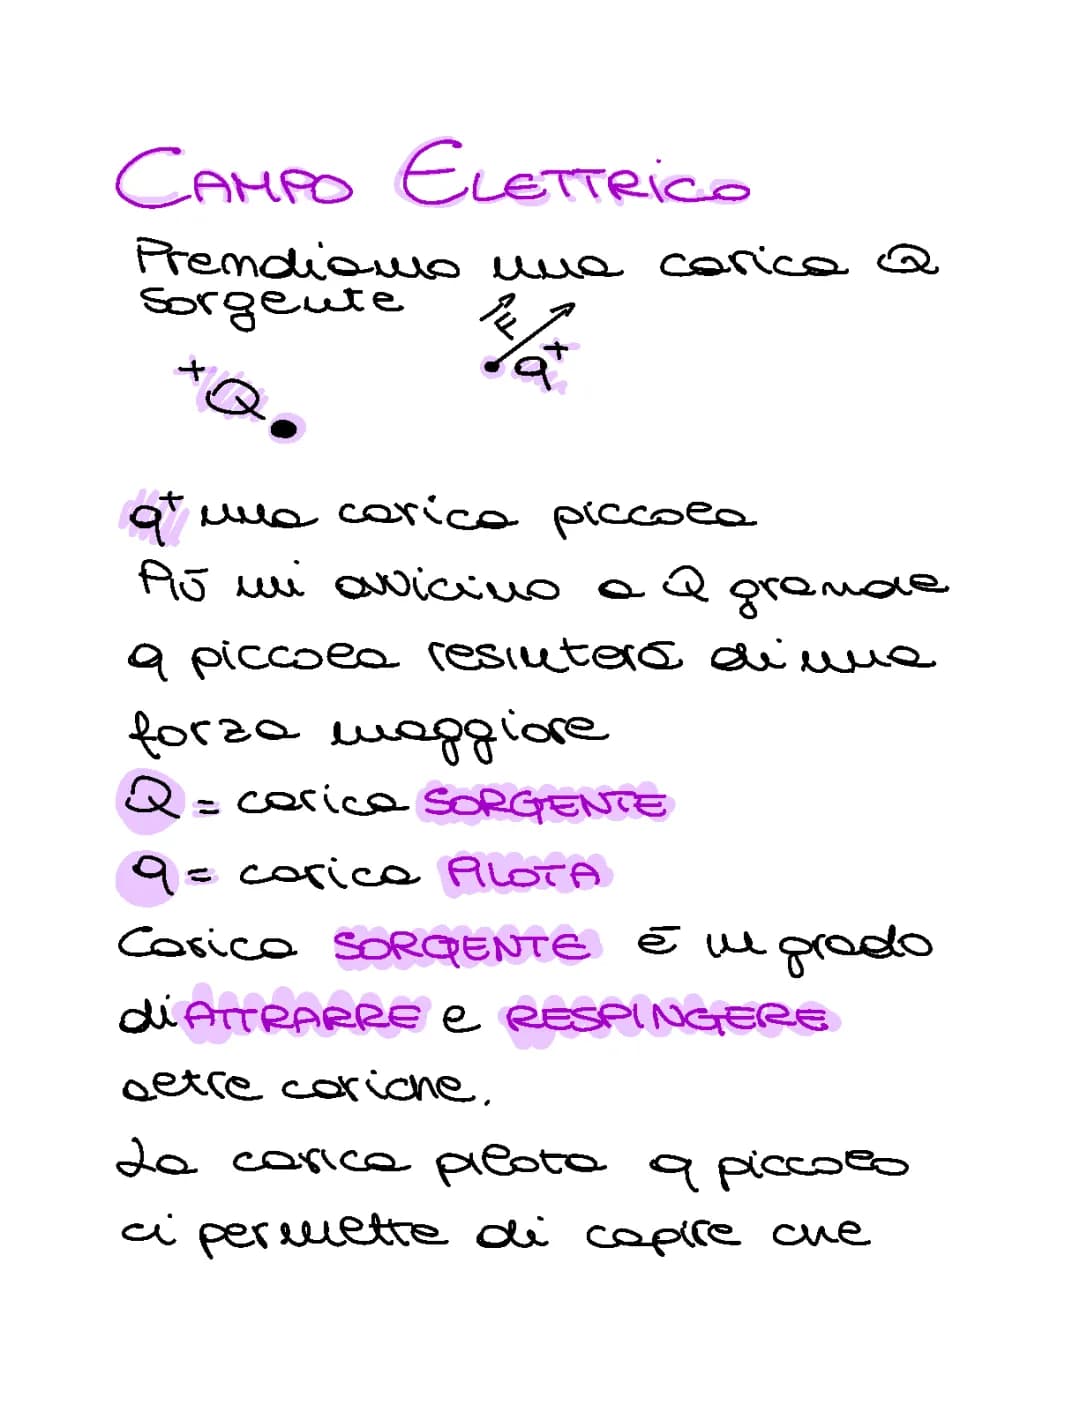 CAMPO ELETTRICO
Prendiamo una carica Q
sorgente
F
+Q
q+
q+ una carica piccola
Più mi avvicino a Q grande
q piccola risulterà di una
forza maggiore
Q = carica SORGENTE
q = carica PILOTA
Carica SORGENTE è in grado
di ATTRARRE e RESPINGERE
altre cariche.
La carica pilota q piccolo
ci permette di capire che